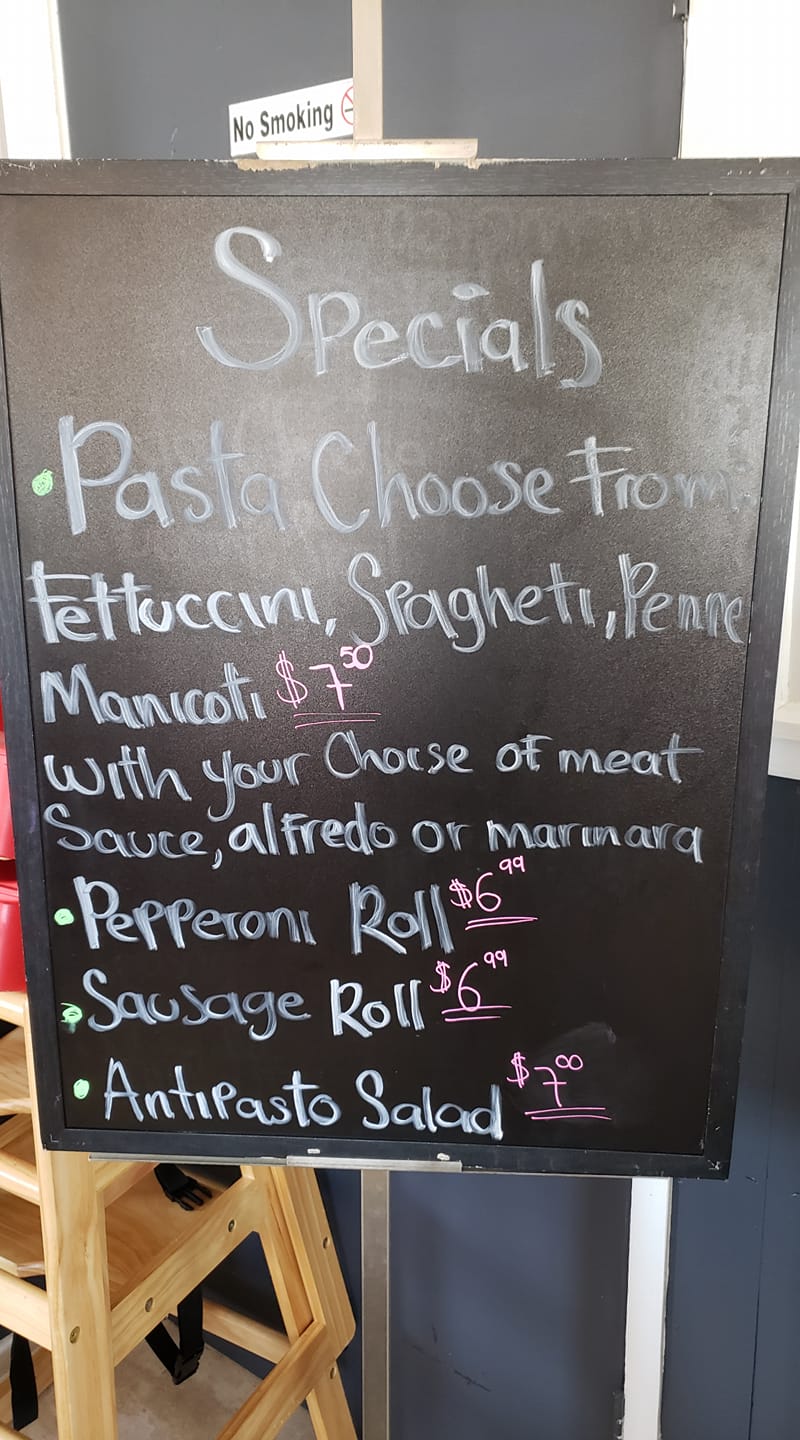 No Smoking
Specials
Pasta Choose From:
Fettuccini, Spagheti, Penne
Manicoti $7.50
with your Choise of meat
Sauce, alfredo or marinara
Pepperoni Roll $6.99
Sausage Roll $6.99
Antipasto Salad $7.00